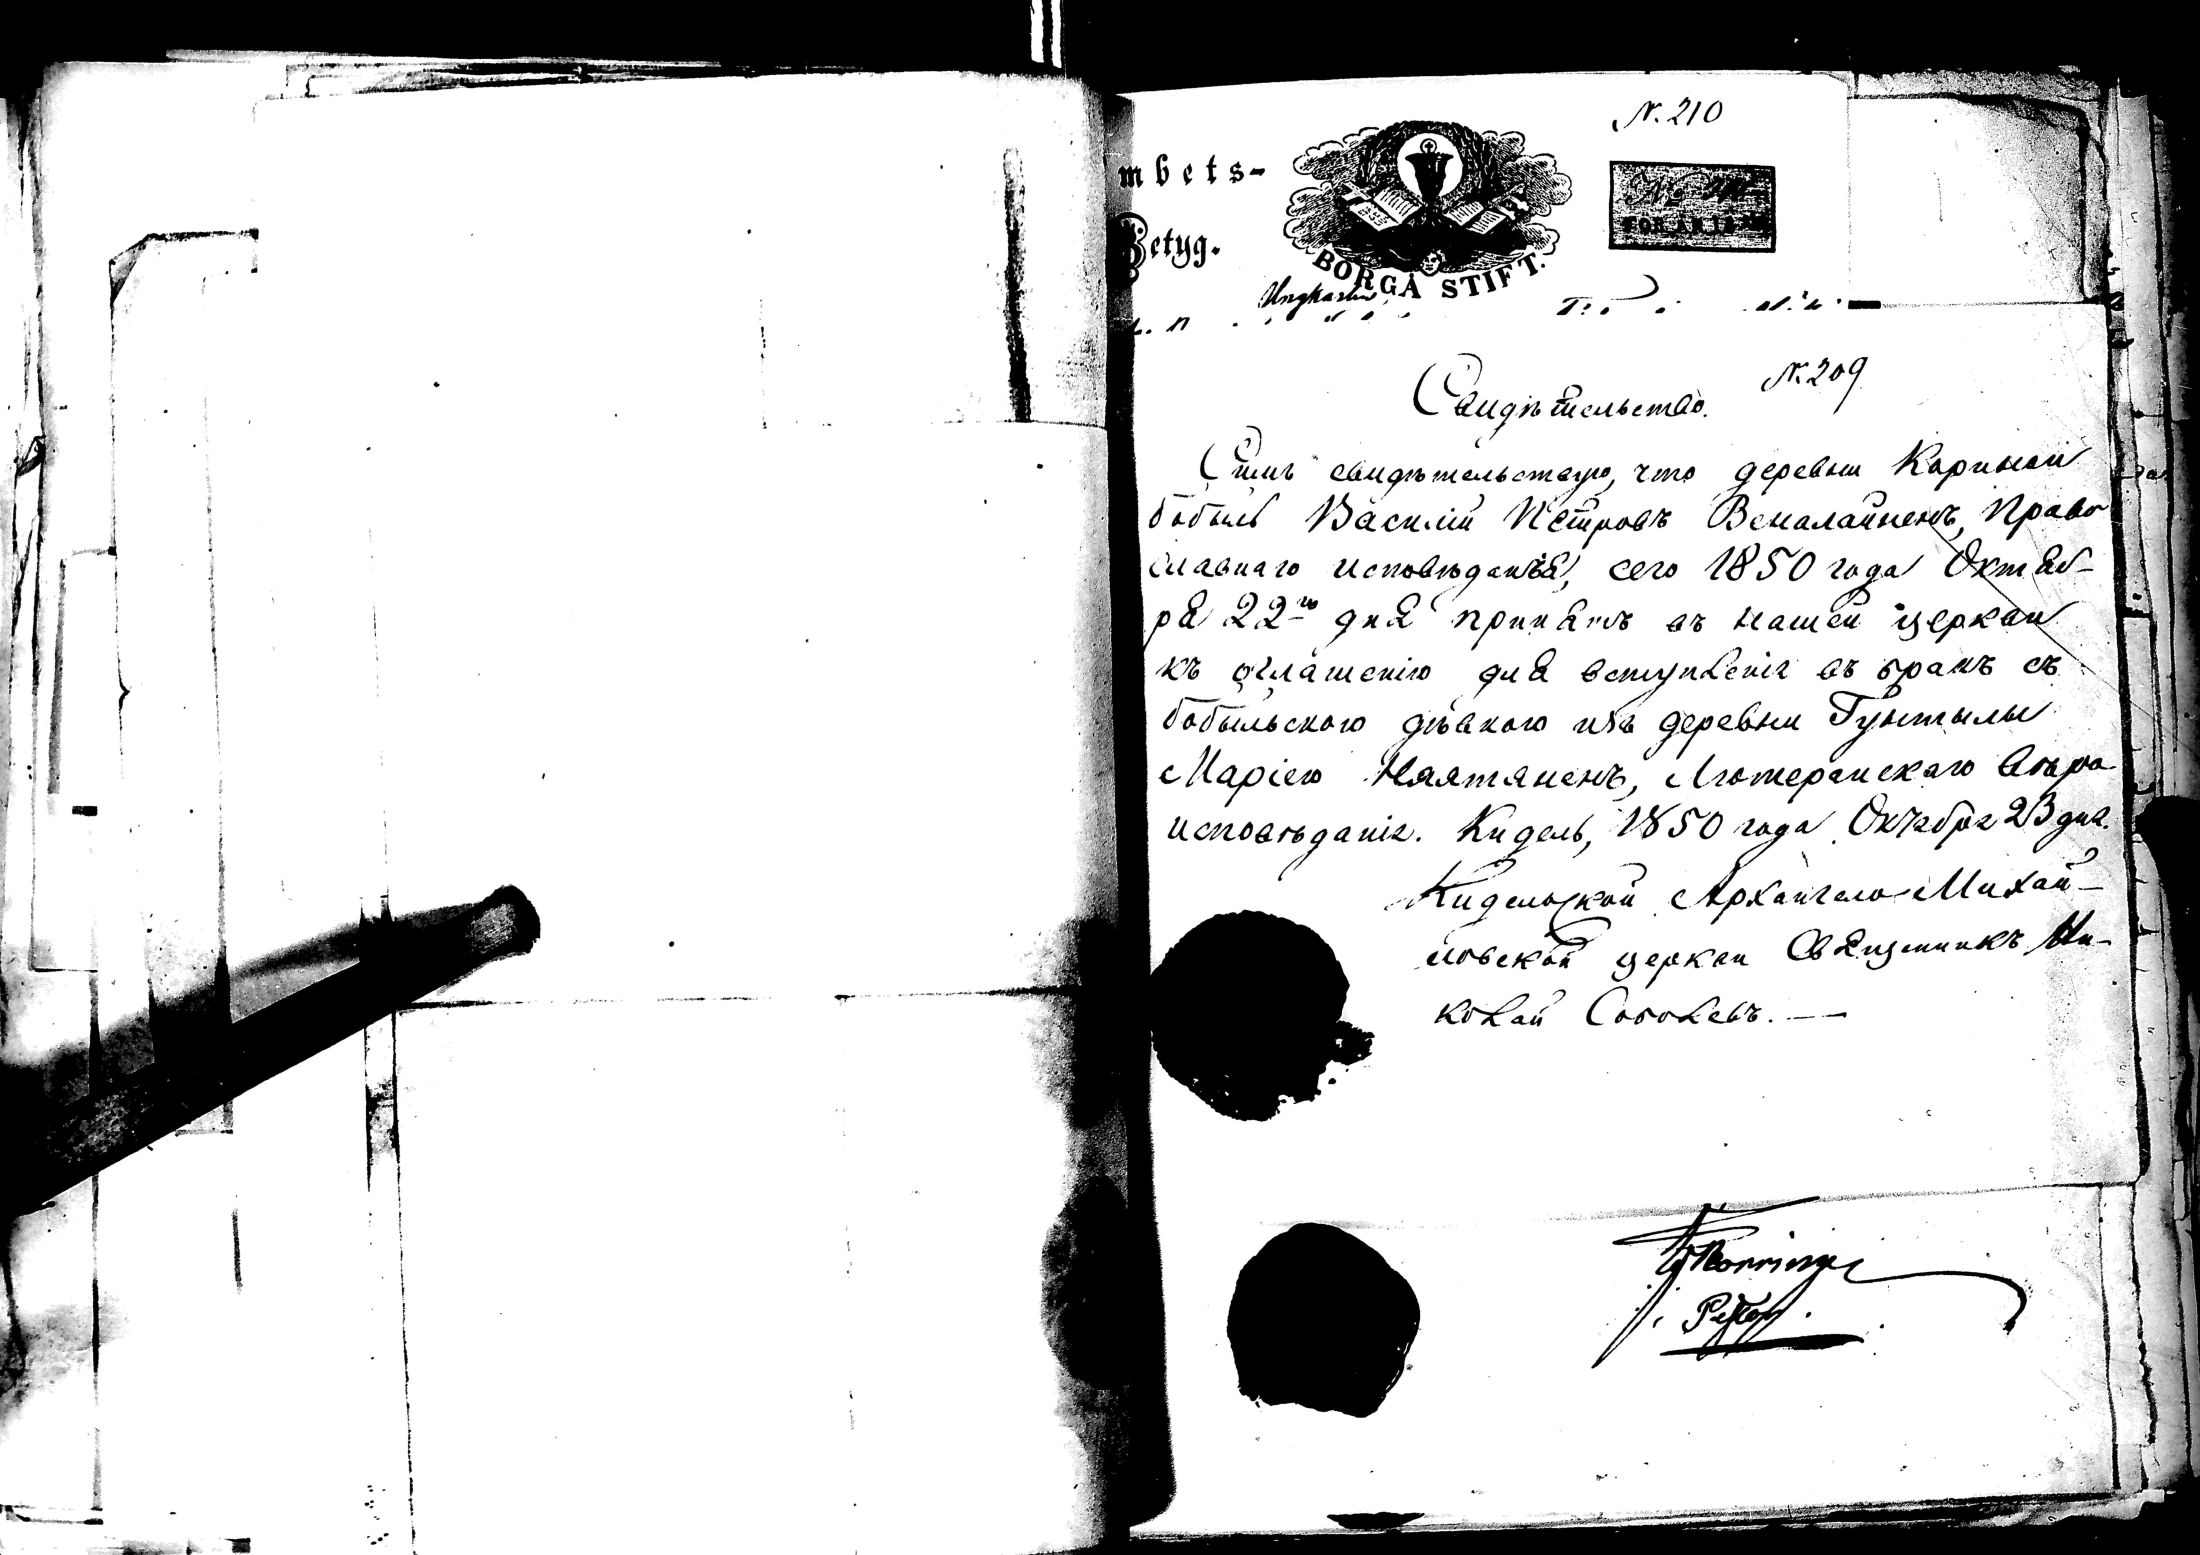 N. 210
mbets-
Betyg.
BORGÅ STIFT.
Ungkarlen
N. 209
Свидѣтельство.
Симъ свидѣтельствую, что деревни Кариной
бобыль Василій Петровъ Веналайненъ, Право
славнаго исповѣданія, сего 1850 года Октяб-
ря 22го дня принятъ въ нашей церкви
къ оглашенію для вступленія въ бракъ съ
бобыльскою дѣвкою изъ деревни Гунтылы
Маріею Няятяненъ, Лютеранскаго Вѣро
исповѣданія. Кидель, 1850 года Октября 23 дня.
Кидельской Архангело-Михай-
ловской церкви Священникъ Ни-
колай Соболевъ. —